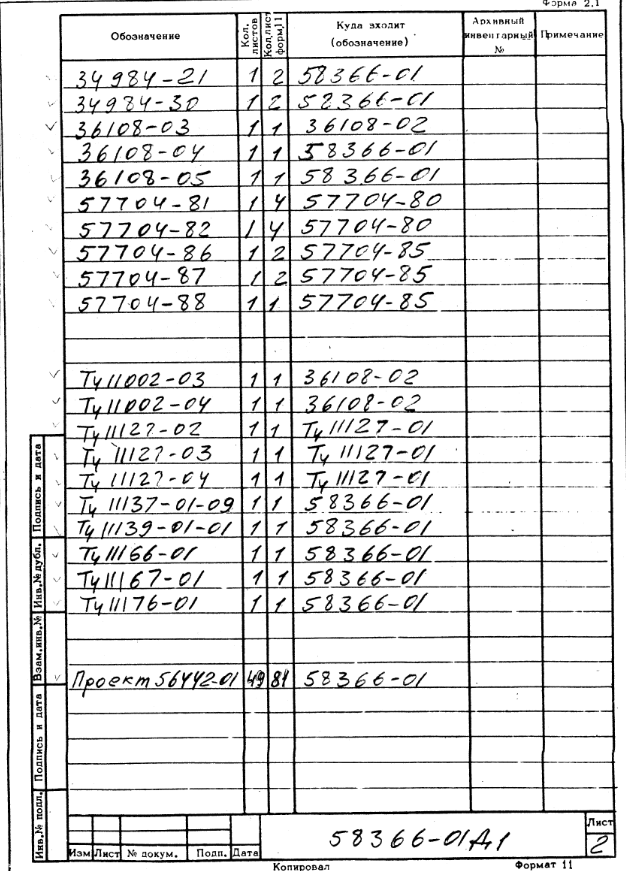 Форма 2.1
Обозначение Кол. листов Кол.лист форм.11 Куда входит (обозначение) Архивный инвентарный № Примечание
34984-21 1 2 58366-01
34984-30 1 2 58366-01
36108-03 1 1 36108-02
36108-04 1 1 58366-01
36108-05 1 1 58366-01
57704-81 1 4 57704-80
57704-82 1 4 57704-80
57704-86 1 2 57704-85
57704-87 1 2 57704-85
57704-88 1 1 57704-85
Ту 11002-03 1 1 36108-02
Ту 11002-04 1 1 36108-02
Ту 11127-02 1 1 Ту 11127-01
Ту 11127-03 1 1 Ту 11127-01
Ту 11127-04 1 1 Ту 11127-01
Ту 11137-01-09 1 1 58366-01
Ту 11139-01-01 1 1 58366-01
Ту 11166-01 1 1 58366-01
Ту 11167-01 1 1 58366-01
Ту 11176-01 1 1 58366-01
Проект 56442-01 49 81 58366-01
Подпись и дата
Инв.№ дубл.
Взам.инв.№
Подпись и дата
Инв.№ подл.
Изм Лист № докум. Подп. Дата
58366-01Д1
Лист
2
Копировал Формат 11